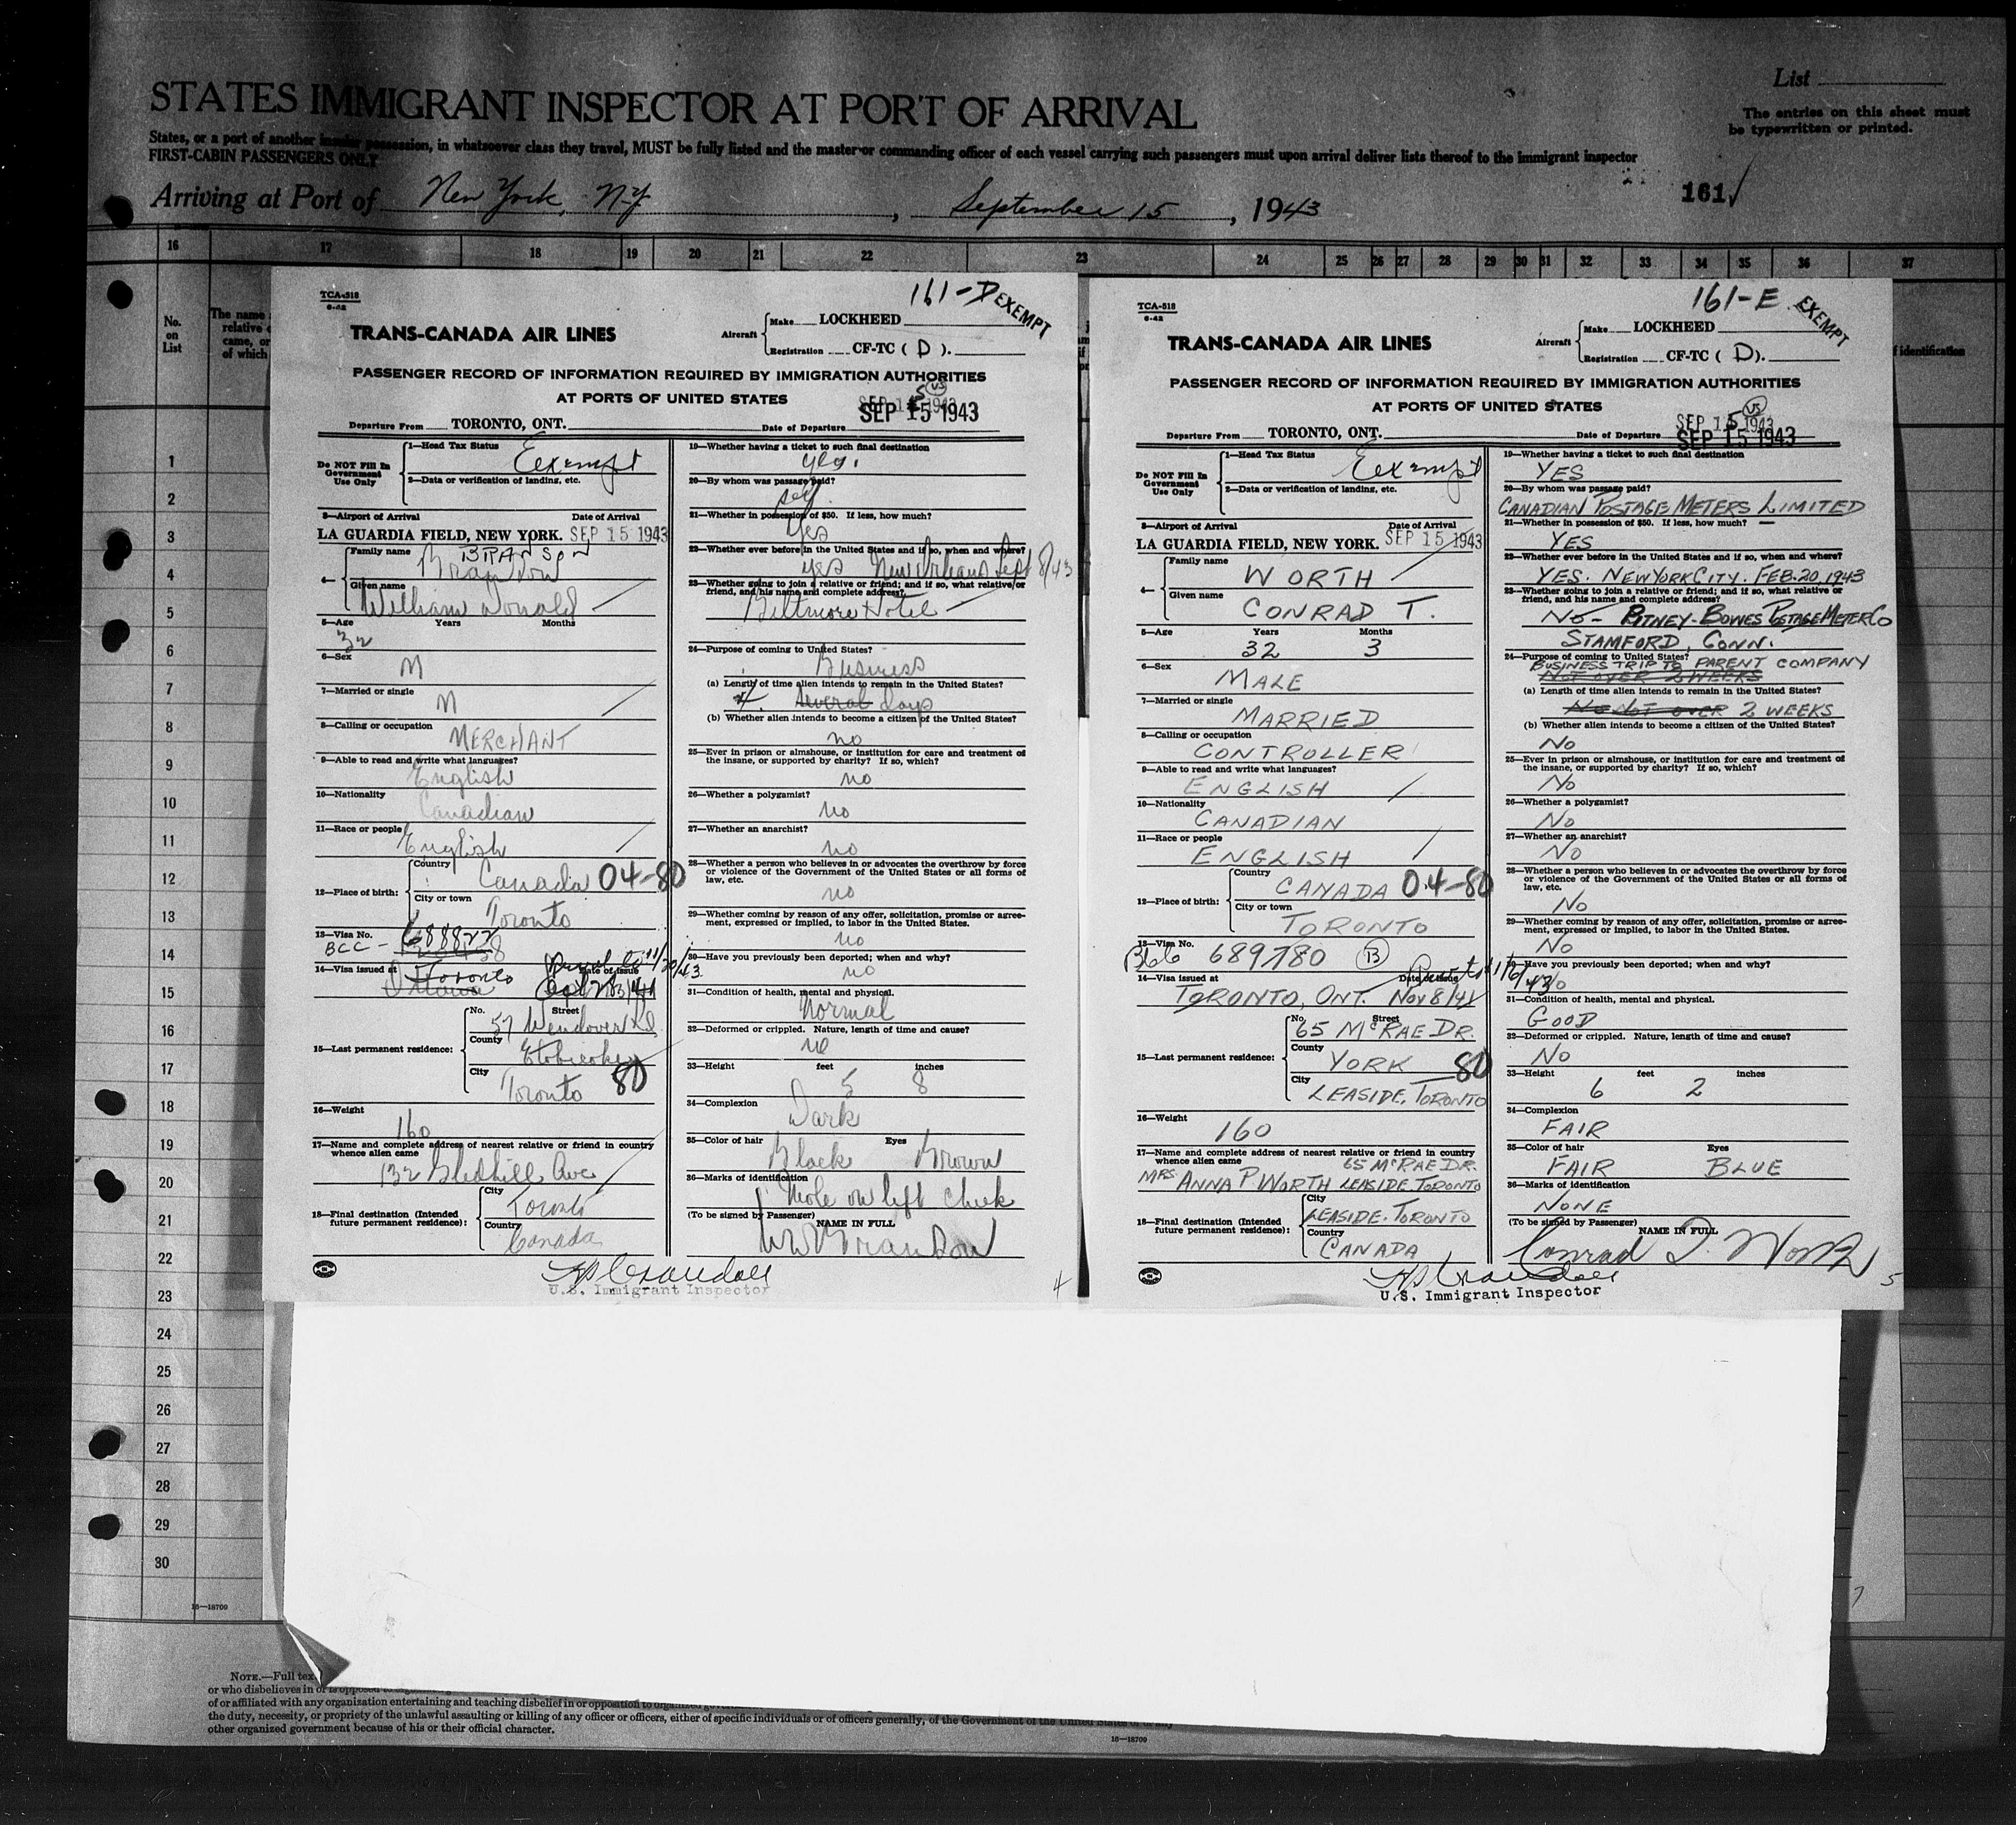 List
STATES IMMIGRANT INSPECTOR AT PORT OF ARRIVAL
The entries on this sheet must
be typewritten or printed.
States, or a port of another insular possession, in whatsoever class they travel, MUST be fully listed and the master or commanding officer of each vessel carrying such passengers must upon arrival deliver lists thereof to the immigrant inspector
FIRST-CABIN PASSENGERS ONLY
Arriving at Port of New York, N.Y. , September 15 , 1943
161
16 17 18 19 20 21 22 23 24 25 26 27 28 29 30 31 32 33 34 35 36 37
No.
on
List
The name
relative
came, or
of which
identification
1
2
3
4
5
6
7
8
9
10
11
12
13
14
15
16
17
18
19
20
21
22
23
24
25
26
27
28
29
30
TCA-518
6-42
161-D EXEMPT
TRANS-CANADA AIR LINES
Aircraft Make LOCKHEED
Registration CF-TC ( D ).
PASSENGER RECORD OF INFORMATION REQUIRED BY IMMIGRATION AUTHORITIES
AT PORTS OF UNITED STATES
SEP 15 1943
Departure From TORONTO, ONT. Date of Departure
Do NOT Fill In
Government
Use Only
1—Head Tax Status
Exempt
2—Data or verification of landing, etc.
3—Airport of Arrival Date of Arrival
LA GUARDIA FIELD, NEW YORK. SEP 15 1943
4— Family name
Given name
William Donald
5—Age Years Months
32
6—Sex
M
7—Married or single
M
8—Calling or occupation
MERCHANT
9—Able to read and write what languages?
English
10—Nationality
Canadian
11—Race or people
English
12—Place of birth: Country
Canada 04-80
City or town
Toronto
13—Visa No. 688822
BCC -
14—Visa issued at Toronto Date of Issue
15—Last permanent residence: No. Street
57 Wendover Rd
County
Etobicoke
City
Toronto 80
16—Weight
160
17—Name and complete address of nearest relative or friend in country
whence alien came
132 Gledhill Ave
18—Final destination (Intended
future permanent residence): City
Toronto
Country
Canada
U.S. Immigrant Inspector
19—Whether having a ticket to such final destination
yes.
20—By whom was passage paid?
self
21—Whether in possession of $50. If less, how much?
Yes
22—Whether ever before in the United States and if so, when and where?
yes New Orleans Sept 8/43
23—Whether going to join a relative or friend; and if so, what relative or
friend, and his name and complete address?
Biltmore Hotel
24—Purpose of coming to United States?
Business
(a) Length of time alien intends to remain in the United States?
several days
(b) Whether alien intends to become a citizen of the United States?
no
25—Ever in prison or almshouse, or institution for care and treatment of
the insane, or supported by charity? If so, which?
no
26—Whether a polygamist?
no
27—Whether an anarchist?
no
28—Whether a person who believes in or advocates the overthrow by force
or violence of the Government of the United States or all forms of
law, etc.
no
29—Whether coming by reason of any offer, solicitation, promise or agree-
ment, expressed or implied, to labor in the United States.
no
30—Have you previously been deported; when and why?
no
31—Condition of health, mental and physical.
Normal
32—Deformed or crippled. Nature, length of time and cause?
no
33—Height feet inches
5 8
34—Complexion
Dark
35—Color of hair Eyes
Black Brown
36—Marks of identification
Mole on left cheek
(To be signed by Passenger) NAME IN FULL
4
TCA-518
6-42
161-E EXEMPT
TRANS-CANADA AIR LINES
Aircraft Make LOCKHEED
Registration CF-TC ( D ).
PASSENGER RECORD OF INFORMATION REQUIRED BY IMMIGRATION AUTHORITIES
AT PORTS OF UNITED STATES
SEP 15 1943
Departure From TORONTO, ONT. Date of Departure SEP 15 1943
Do NOT Fill In
Government
Use Only
1—Head Tax Status
Exempt
2—Data or verification of landing, etc.
3—Airport of Arrival Date of Arrival
LA GUARDIA FIELD, NEW YORK. SEP 15 1943
4— Family name
WORTH
Given name
CONRAD T.
5—Age Years Months
32 3
6—Sex
MALE
7—Married or single
MARRIED
8—Calling or occupation
CONTROLLER
9—Able to read and write what languages?
ENGLISH
10—Nationality
CANADIAN
11—Race or people
ENGLISH
12—Place of birth: Country
CANADA 04-80
City or town
TORONTO
13—Visa No.
689780 B
14—Visa issued at
TORONTO, ONT. Nov 8/41
15—Last permanent residence: No. Street
65 McRAE DR.
County
YORK 80
City
LEASIDE, TORONTO
16—Weight
160
17—Name and complete address of nearest relative or friend in country
whence alien came 65 McRAE DR.
MRS ANNA P WORTH LEASIDE TORONTO
18—Final destination (Intended
future permanent residence): City
LEASIDE. TORONTO
Country
CANADA
U.S. Immigrant Inspector
19—Whether having a ticket to such final destination
YES
20—By whom was passage paid?
CANADIAN POSTAGE METERS LIMITED
21—Whether in possession of $50. If less, how much? —
YES
22—Whether ever before in the United States and if so, when and where?
YES. NEW YORK CITY. FEB. 20, 1943
23—Whether going to join a relative or friend; and if so, what relative or
friend, and his name and complete address?
NO — PITNEY-BOWES POSTAGE METER CO
STAMFORD, CONN.
24—Purpose of coming to United States?
BUSINESS TRIP TO PARENT COMPANY
NOT OVER 2 WEEKS
(a) Length of time alien intends to remain in the United States?
No NOT OVER 2 WEEKS
(b) Whether alien intends to become a citizen of the United States?
NO
25—Ever in prison or almshouse, or institution for care and treatment of
the insane, or supported by charity? If so, which?
NO
26—Whether a polygamist?
NO
27—Whether an anarchist?
NO
28—Whether a person who believes in or advocates the overthrow by force
or violence of the Government of the United States or all forms of
law, etc.
NO
29—Whether coming by reason of any offer, solicitation, promise or agree-
ment, expressed or implied, to labor in the United States.
NO
30—Have you previously been deported; when and why?
NO
31—Condition of health, mental and physical.
GOOD
32—Deformed or crippled. Nature, length of time and cause?
NO
33—Height feet inches
6 2
34—Complexion
FAIR
35—Color of hair Eyes
FAIR BLUE
36—Marks of identification
NONE
(To be signed by Passenger) NAME IN FULL
Conrad T. Worth
5
16—18709
NOTE.—Full tex
or who disbelieves in or is opposed to
of or affiliated with any organization entertaining and teaching disbelief in or opposition to organized
the duty, necessity, or propriety of the unlawful assaulting or killing of any officer or officers, either of specific individuals or of officers generally, of the Government of the United States or of any
other organized government because of his or their official character.
16—18709